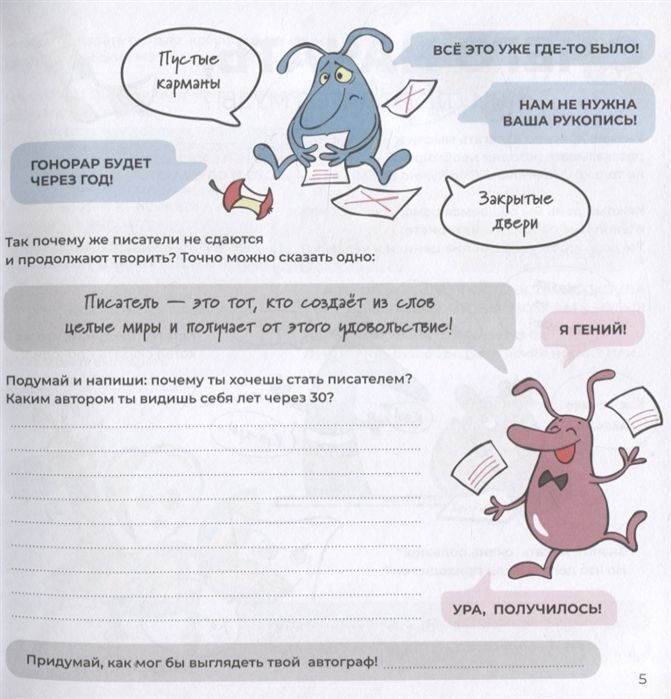 Пустые
карманы
ВСЁ ЭТО УЖЕ ГДЕ-ТО БЫЛО!
НАМ НЕ НУЖНА
ВАША РУКОПИСЬ!
ГОНОРАР БУДЕТ
ЧЕРЕЗ ГОД!
Закрытые
двери
Так почему же писатели не сдаются
и продолжают творить? Точно можно сказать одно:
Писатель — это тот, кто создаёт из слов
целые миры и получает от этого удовольствие!
Я ГЕНИЙ!
Подумай и напиши: почему ты хочешь стать писателем?
Каким автором ты видишь себя лет через 30?
УРА, ПОЛУЧИЛОСЬ!
Придумай, как мог бы выглядеть твой автограф!
5